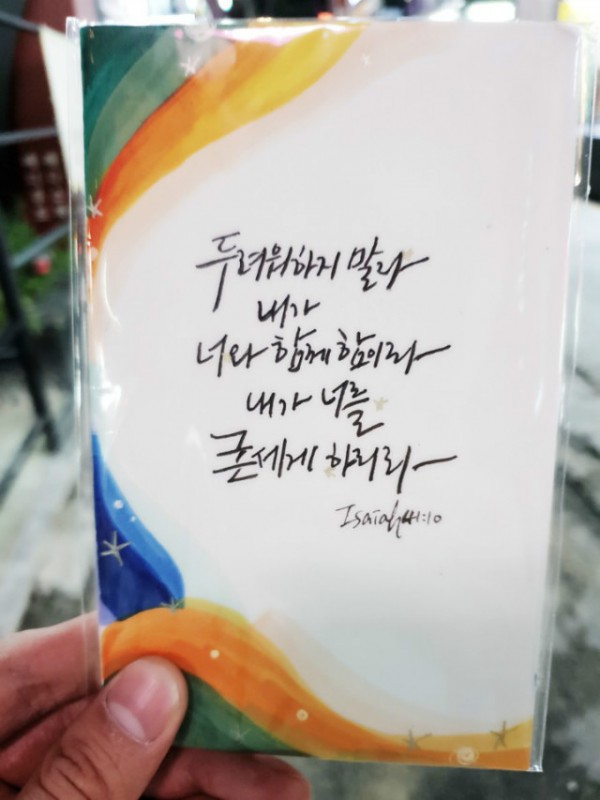 두려워하지 말라
내가
너와 함께 함이라
내가 너를
굳세게 하리라
Isaiah 41:10